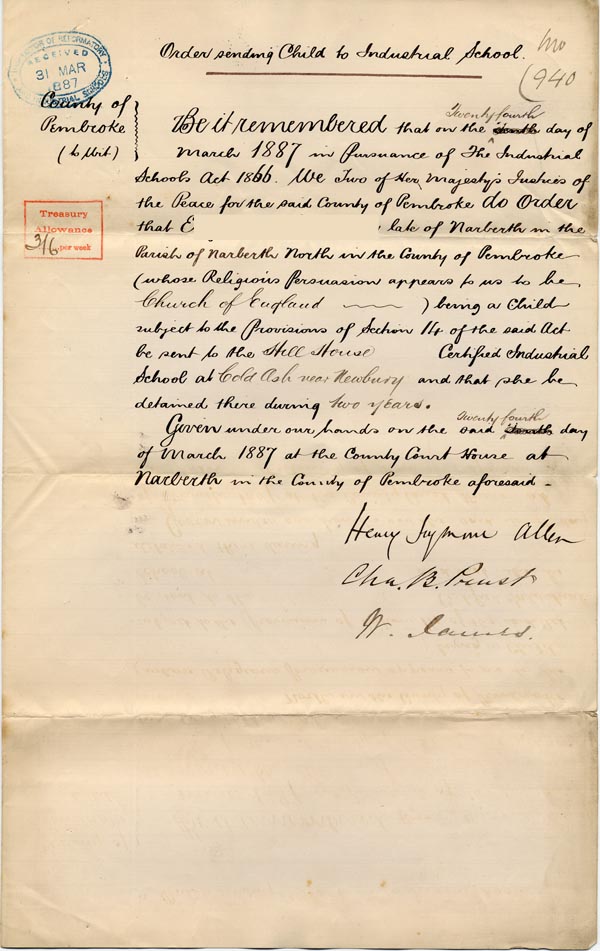 Order sending Child to Industrial School.
940
INSPECTOR OF REFORMATORY
RECEIVED
31 MAR
1887
INDUSTRIAL SCHOOLS
County of
Pembroke
(to Wit)
Treasury
Allowance
3/6 per week
Twenty fourth
Be it remembered that on the tenth day of
March 1887 in Pursuance of The Industrial
Schools Act 1866. We Two of Her Majesty's Justices of
the Peace for the said County of Pembroke do Order
that E late of Narberth in the
Parish of Narberth North in the County of Pembroke
(whose Religious Persuasion appears to us to be
Church of England ) being a Child
subject to the Provisions of Section 14 of the said Act
be sent to the Hill House Certified Industrial
School at Cold Ash near Newbury and that she be
detained there during two years.
Twenty fourth
Given under our hands on the said tenth day
of March 1887 at the County Court House at
Narberth in the County of Pembroke aforesaid -
Henry Seymour Allen
Cha. B. Prust
W. James.